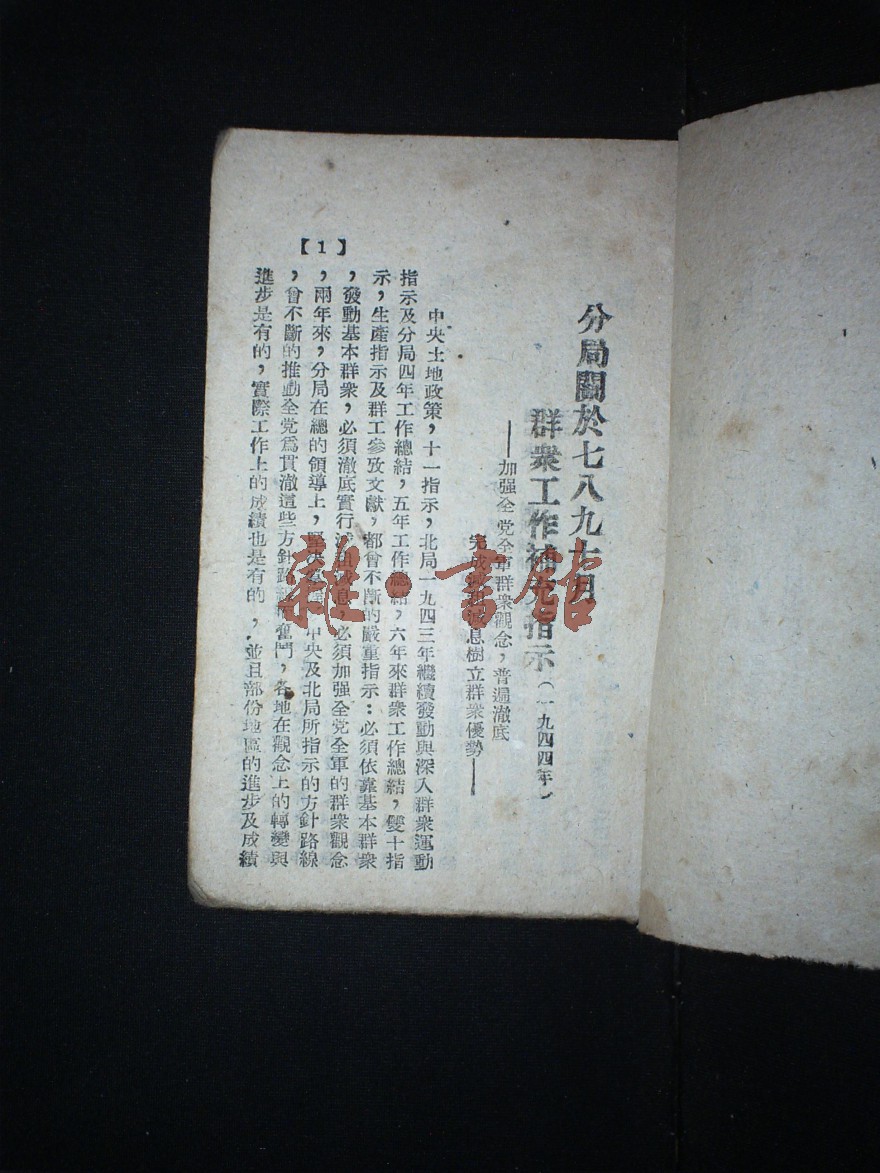 分局關於七八九十月
群衆工作補充指示(一九四四年)
——加强全党全軍群衆觀念,普遍澈底
完成減租減息樹立群衆優勢——
中央土地政策,十一指示,北局一九四三年繼續發動與深入群衆運動
指示及分局四年工作總結,五年工作總結,六年來群衆工作總結,雙十指
示,生產指示及群工參攷文献,都曾不斷的嚴重指示:必須依靠基本群衆
,發動基本群衆,必須澈底實行減租減息,必須加强全党全軍的群衆觀念
,兩年來,分局在總的領導上,堅决 中央及北局所指示的方針路線
,曾不斷的推動全党爲貫澈這些方針路 奮鬥,各地在觀念上的轉變與
進步是有的,實際工作上的成績也是有的,並且部份地區的進步及成績
【1】
雜·書館